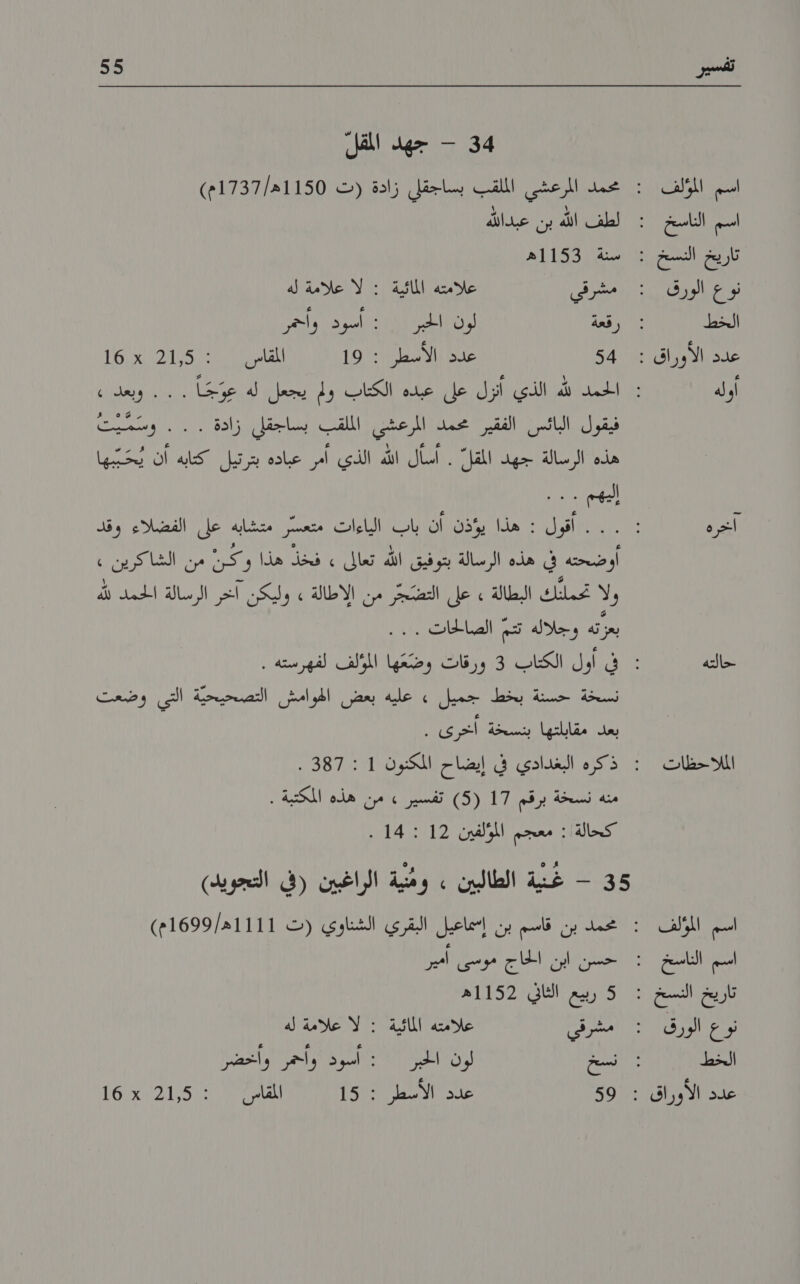 تفسير 55
34 – جهد المقلّ
اسم المؤلف : محمد المرعشي الملقب بساجقلي زادة (ت 1150ه/1737م)
اسم الناسخ : لطف الله بن عبدالله
تاريخ النسخ : سنة 1153ه
نوع الورق : مشرقي علامته المائية : لا علامة له
الخط : رقعة لون الحبر : أسود وأحمر
عدد الأوراق : 54 عدد الأسطر : 19 المقاس : 21,5 x 16
أوله : الحمد لله الذي أنزل على عبده الكتاب ولم يجعل له عِوَجَاً . . . وبعد ،
فيقول البائس الفقير محمد المرعشي الملقب بساجقلي زادة . . . وسَمَّيْتُ
هذه الرسالة جهد المقلّ . أسأل الله الذي أمر عباده بترتيل كتابه أن يُحَبِّبها
إليهم . . .
آخره : . . . أقول : هذا يؤذن أن باب الياءات متعسّر متشابه على الفضلاء وقد
أوضحته في هذه الرسالة بتوفيق الله تعالى ، فخذْ هذا وكنْ من الشاكرين ،
ولا تحملنَّك البطالة ، على التضَجّر من الإطالة ، وليكن آخر الرسالة الحمد لله
بعزّته وجلاله تتمّ الصالحات . . .
حالته : في أول الكتاب 3 ورقات وضَعَها المؤلف لفهرسته .
نسخة حسنة بخط جميل ، عليه بعض الهوامش التصحيحيّة التي وضعت
بعد مقابلتها بنسخة أخرى .
الملاحظات : ذكره البغدادي في إيضاح المكنون 1 : 387 .
منه نسخة برقم 17 (5) تفسير ، من هذه المكتبة .
كحالة : معجم المؤلفين 12 : 14 .
35 – غُنْية الطالبين ، ومُنْية الراغبين (في التجويد)
اسم المؤلف : محمد بن قاسم بن إسماعيل البقري الشناوي (ت 1111ه/1699م)
اسم الناسخ : حسن ابن الحاج موسى أمير
تاريخ النسخ : 5 ربيع الثاني 1152ه
نوع الورق : مشرقي علامته المائية : لا علامة له
الخط : نسخ لون الحبر : أسود وأحمر وأخضر
عدد الأوراق : 59 عدد الأسطر : 15 المقاس : 21,5 x 16